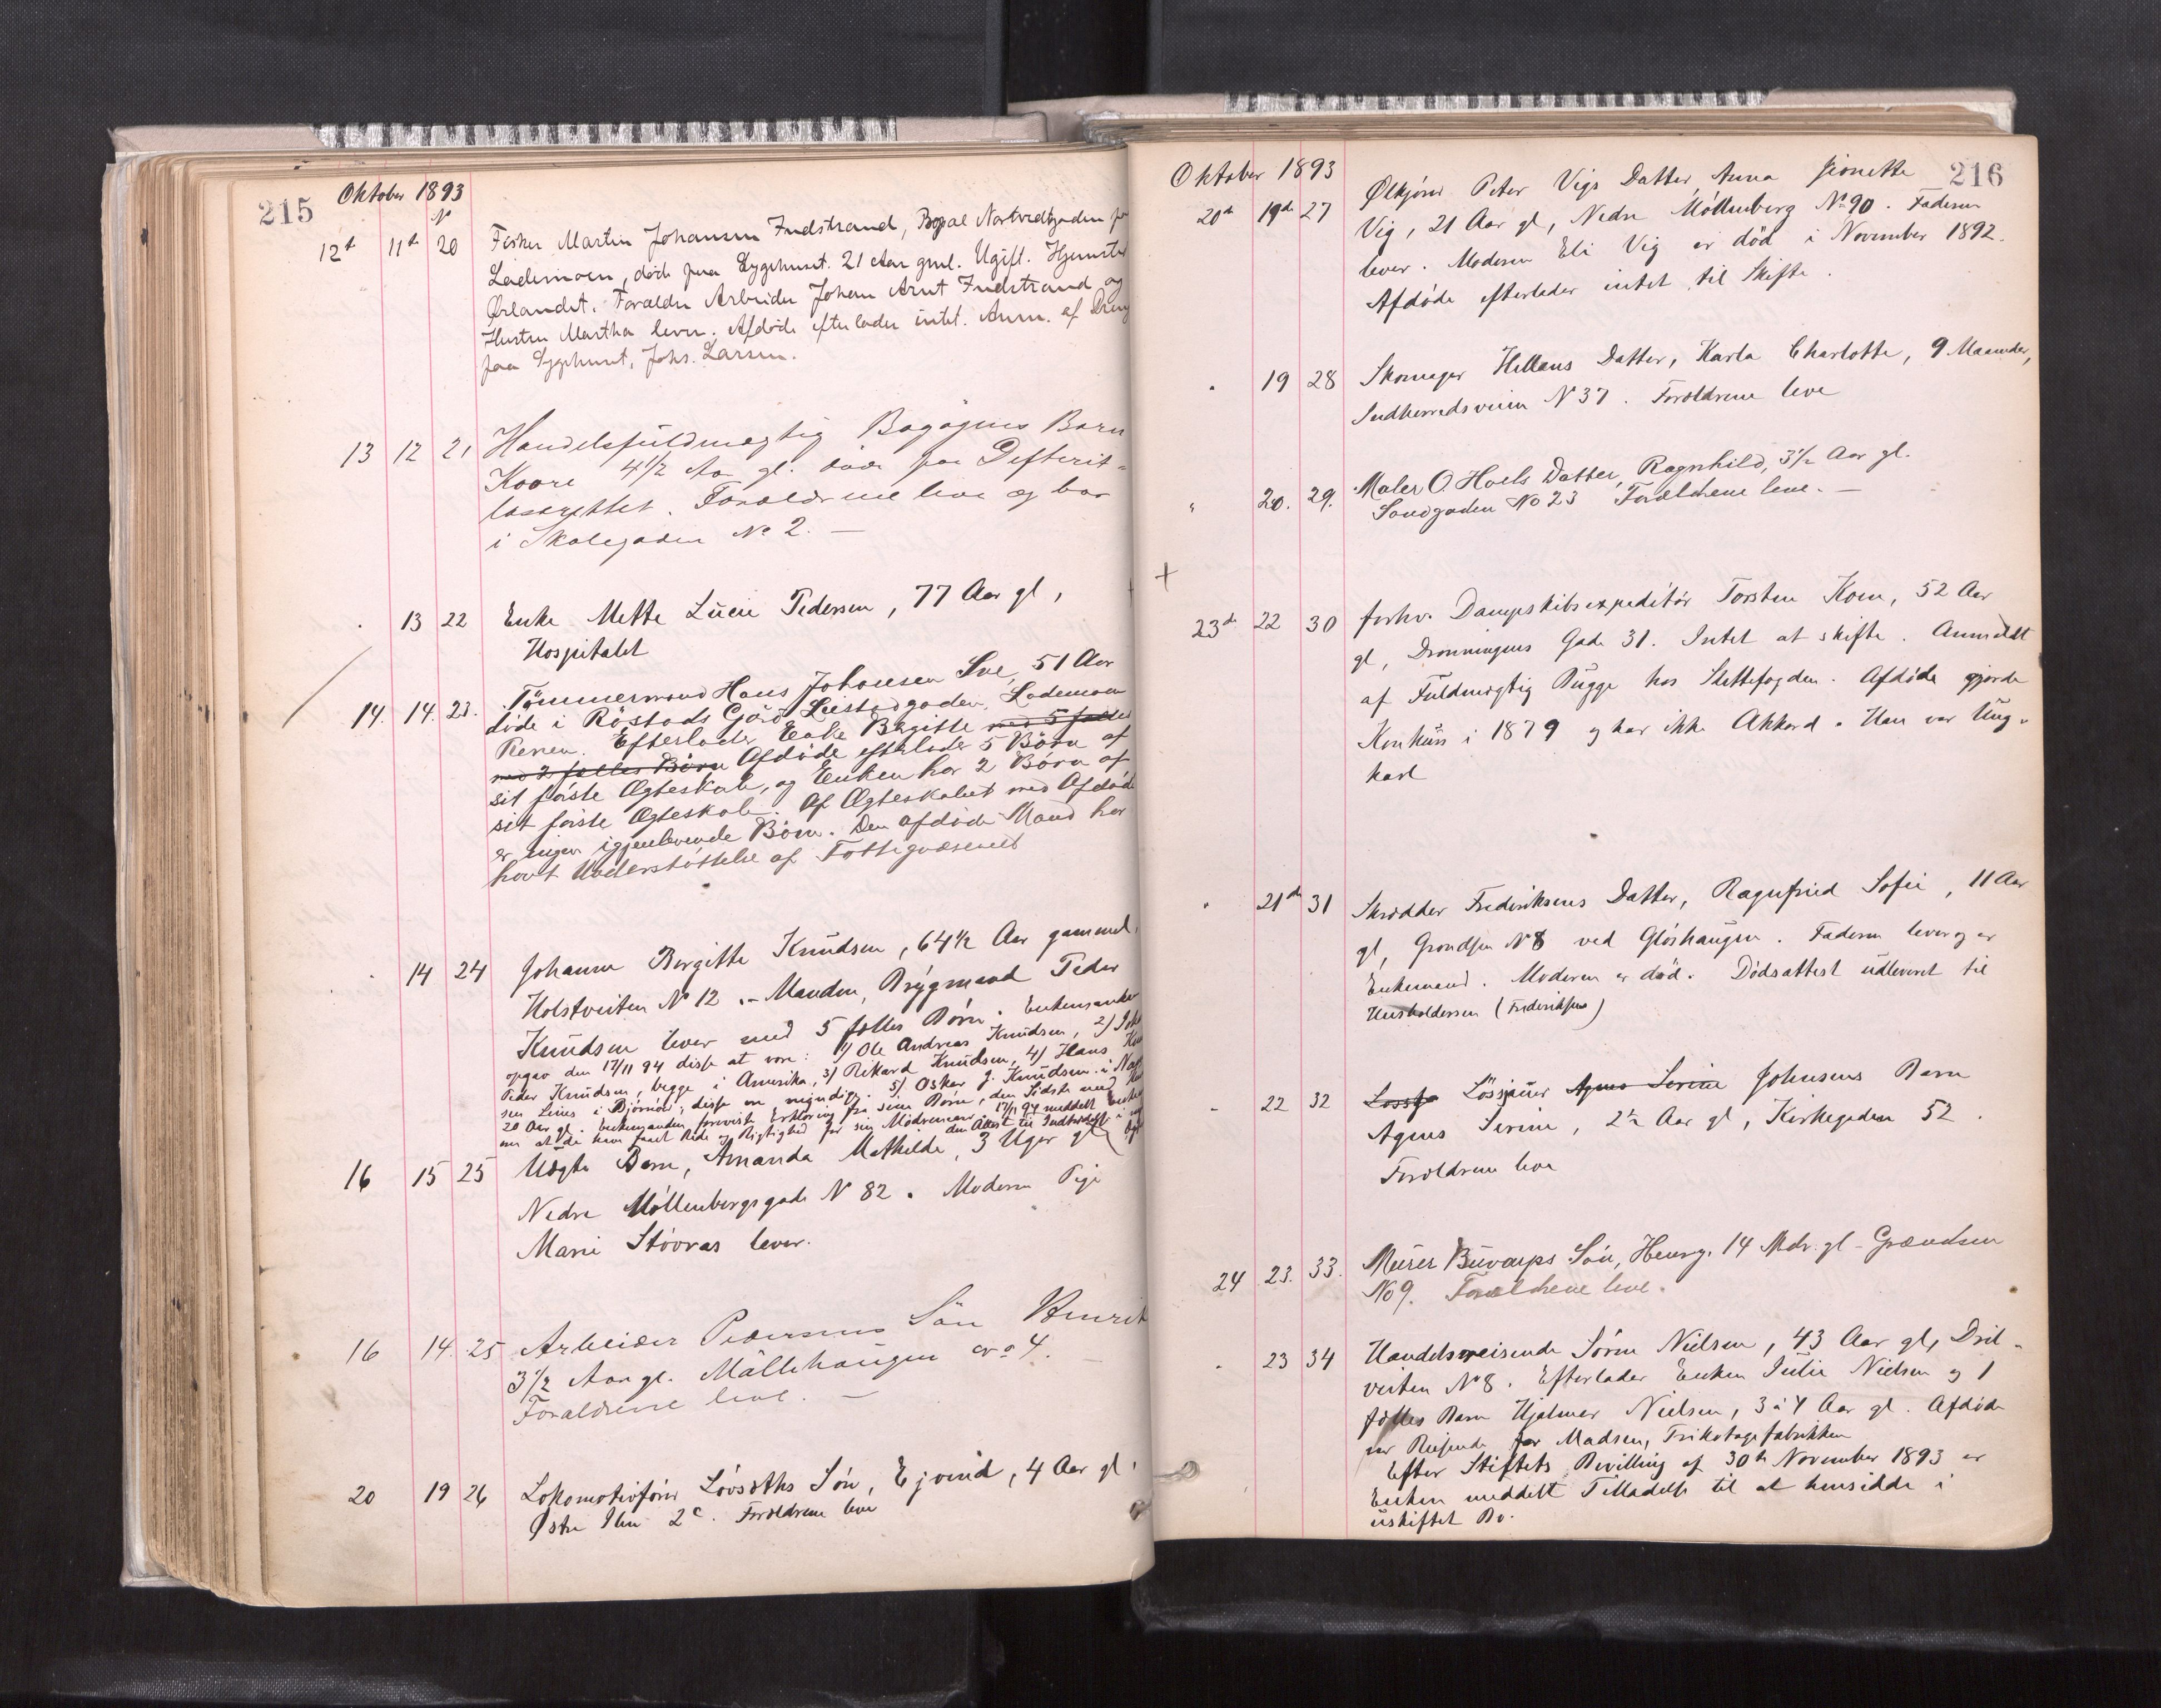 215
Oktober 1893
No
12te 11te 20 Fisker Martin Johansen Indstrand, Bopæl
Lademoen, døde paa Sygehuset. 21 Aar gml. Ugift. Hjemsted
Ørlandet. Forældre Arbeider Johan Arnt Indstrand og
Hustru Martha lever. Afdøde efterlader intet. Anm. af Dreng
paa Sygehuset, Johs. Larsen.
13 12 21 Handelsfuldmægtig Børn
Kaare 4 1/2 Aar gl. døde paa Difterit-
lasarettet. Forældrene leve og bor
i Skolegaden No 2. —
" 13 22 Enke Mette Lucie Pedersen, 77 Aar gl,
Hospitalet
14. 14. 23. Tömmermand Hans Johansen Sve, 51 Aar
döde i Röstads Gård Leistadgaden, Lademoen
Reren. Efterlader Enke Bergitte med 5 fælles
med 2 fælles Börn Afdöde efterlader 5 Börn af
sit förste Ægteskab, og Enken har 2 Börn af
sit förste Ægteskab. Af Ægteskabet med Afdöde
er ingen igjenlevende Börn. Den afdöde Mand har
havt Understöttelse af Fattigvæsenet
" 14 24 Johanne Bergitte Knudsen, 64 1/2 Aar gammel,
Holstveiten No 12. - Manden, Brygmand Peder
Knudsen lever med 5 fælles Børn. Enkemanden
opgav den 17/11 94 disse at være: 1) Ole Andreas Knudsen, 2) Joh
Peder Knudsen, begge i Amerika, 3) Rikard Knudsen, 4) Hans
sen Lines i Bjørnør; disse ere myndige. 5) Oskar J. Knudsen
20 Aar gl. Enkemanden foreviste Erklæring fra sine Børn, den Sidste med
om at de have faaet Rede og Rigtighed for sin Mødrenearv. 17/11 94 meddelt
den Attest til
16 15 25 Uægte Barn, Amanda Mathilde, 3 Uger gl,
Nedre Møllenbergsgade N 82. Moderen Pige
Marie Støvraas lever.
16 14. 25 Arbeider Pedersens Sön Henrik
3 1/2 Aar gl. Möllehaugen No 4. —
Forældrene leve. —
20 19 26 Lokomotivfører Løvsæths Søn, Ejvind, 4 Aar gl.
Østre Ihn 2c. Forældrene leve
216
Oktober 1893
20de 19de 27 Ølkjører Peter Vigs Datter Anna Jionette
Vig, 21 Aar gl, Nedre Møllenberg No 90. Faderen
lever. Moderen Eli Vig er død i November 1892.
Afdøde efterlader intet til Skifte.
" 19 28 Skomager Hellans Datter, Karla Charlotte, 9 Maaneder,
Indherredsveien N 37. Forældrene leve
" 20. 29. Maler O. Hoels Datter, Ragnhild, 3 1/2 Aar gl.
Sandgaden No 23 Forældrene leve. —
+
23de 22 30 forhv. Dampskibsexpeditør Torsten Korn, 52 Aar
gl, Dronningens Gade 31. Intet at skifte. Anmeldt
af Fuldmægtig Bugge hos Skattefogden. Afdøde gjorde
Konkurs i 1879 og har ikke Akkord. Han var Ung-
karl
" 21de 31 Skrædder Frederiksens Datter, Ragnfrid Sofie, 11 Aar
gl, Grændsen No 8 ved Gløshaugen. Faderen lever og er
Enkemand. Moderen er død. Dødsattest udleveret til
Husholdersen (Frederiksens)
" 22 32 Lossj Løssjauer Agnes Serine Johnsens Barn
Agnes Serine, 2 1/2 Aar gl, Kirkegaden 52.
Forældrene leve
24 23. 33. Murer Buvarps Sön, Henry. 14 Mdr. gl - Grændsen
No 9. Forældrene leve.
" 23 34 Handelsreisende Søren Nielsen, 43 Aar gl, Dril-
veiten No 8. Efterlader Enken Julie Nielsen og 1
fælles Barn Hjalmar Nielsen, 3 à 4 Aar gl. Afdøde
var Reisende for Madsen, Trikotagefabrikken
Efter Stiftets Bevilling af 30te November 1893 er
Enken meddelt Tilladelse til at hensidde i
uskiftet Bo.